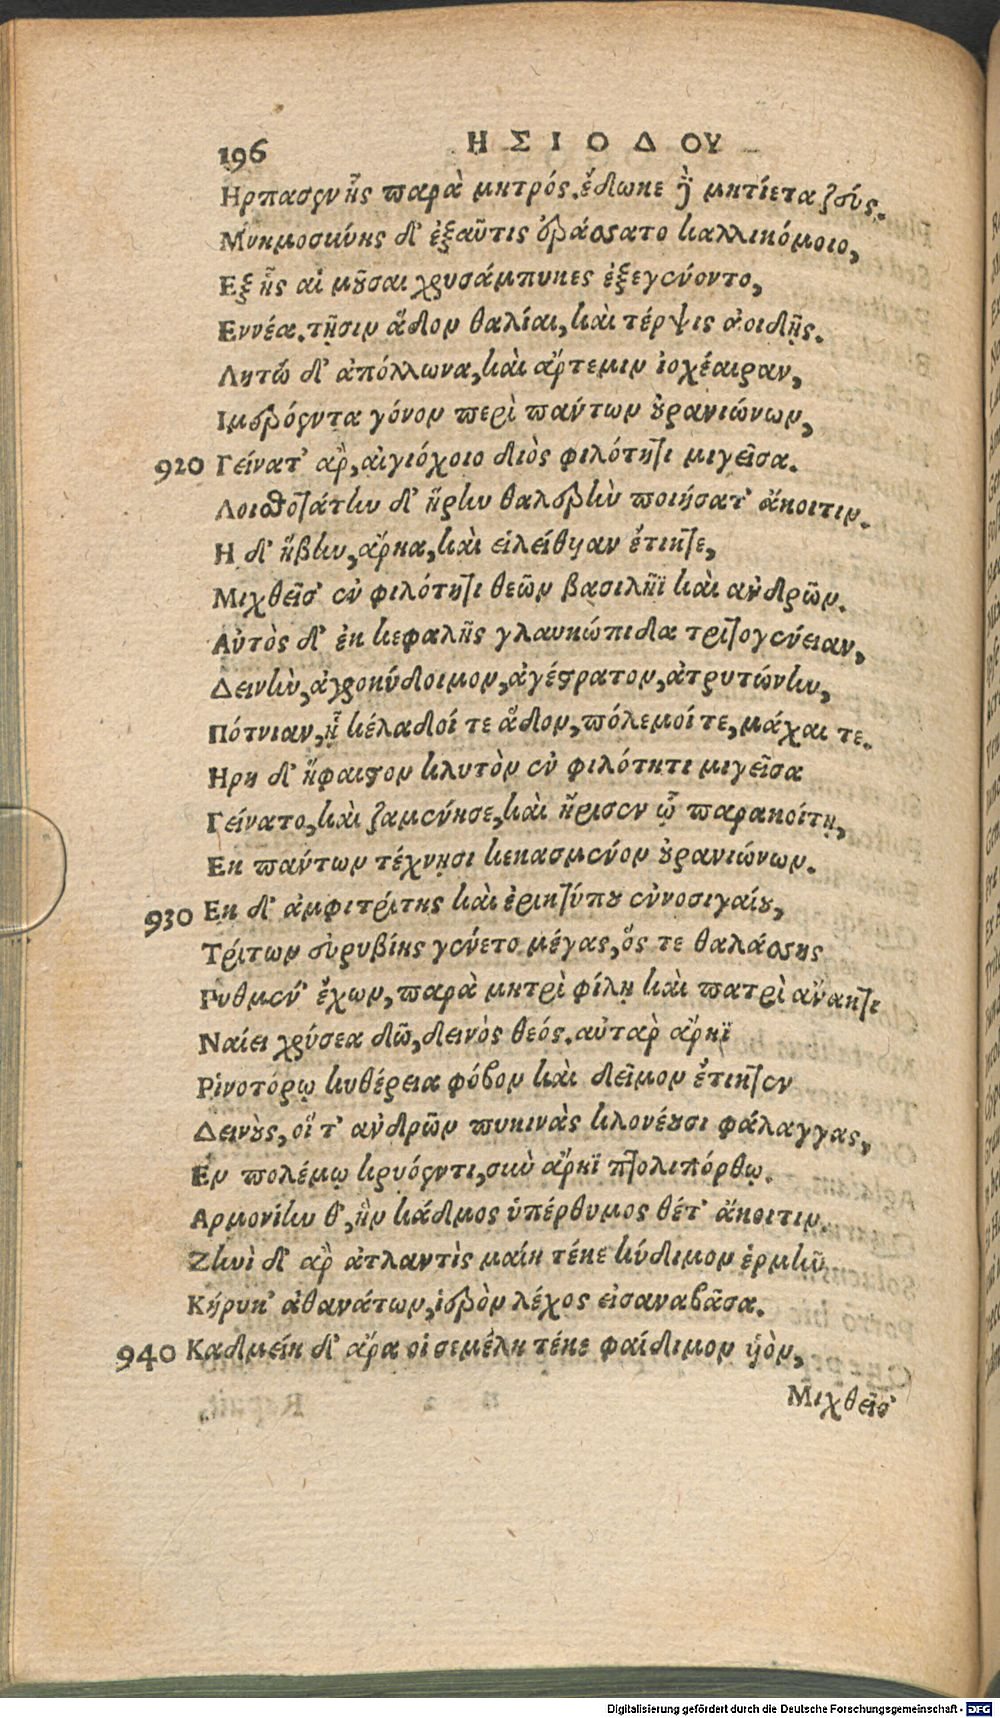 196 ΗΣΙΟΔΟΥ
Ηρπασεν ἧς παρὰ μητρός. ἔδωκε δὲ μητίετα ζεύς.
Μνημοσύνης δ' ἐξαῦτις ἐράσσατο καλλικόμοιο,
Εξ ἧς αἱ μοῦσαι χρυσάμπυκες ἐξεγένοντο,
Εννέα. τῇσιν ἅδον θαλίαι, καὶ τέρψις ἀοιδῆς.
Λητὼ δ' ἀπόλλωνα, καὶ ἄρτεμιν ἰοχέαιραν,
Ιμερόεντα γόνον περὶ πάντων οὐρανιώνων,
920 Γείνατ' ἄρ, αἰγιόχοιο διὸς φιλότητι μιγεῖσα.
Λοισθοτάτην δ' ἥρην θαλερὴν ποιήσατ' ἄκοιτιν.
Η δ' ἥβην, ἄρηα, καὶ εἰλείθυαν ἔτικτε,
Μιχθεῖσ' ἐν φιλότητι θεῶν βασιλῆϊ καὶ ἀνδρῶν.
Αὐτὸς δ' ἐκ κεφαλῆς γλαυκώπιδα τριτογένειαν,
Δεινὴν, ἀγροκύδοιμον, ἀγέστρατον, ἀτρυτώνην,
Πότνιαν, ᾗ κέλαδοί τε ἅδον, πόλεμοί τε, μάχαι τε.
Ηρη δ' ἥφαιστον κλυτὸν ἐν φιλότητι μιγεῖσα
Γείνατο, καὶ ζαμένησε, καὶ ἤρισεν ᾧ παρακοίτῃ,
Εκ πάντων τέχνῃσι κεκασμένον οὐρανιώνων.
930 Εκ δ' ἀμφιτρίτης καὶ ἐρικτύπου ἐννοσιγαίου,
Τρίτων εὐρυβίης γένετο μέγας, ὅς τε θαλάσσης
Πυθμέν' ἔχων, παρὰ μητρὶ φίλῃ καὶ πατρὶ ἄνακτι
Ναίει χρύσεα δῶ, δεινὸς θεός. αὐτὰρ ἄρηϊ
Ρἱνοτόρῳ κυθέρεια φόβον καὶ δεῖμον ἔτικτεν
Δεινοὺς, οἵ τ' ἀνδρῶν πυκινὰς κλονέουσι φάλαγγας,
Εν πολέμῳ κρυόεντι, σὺν ἄρηϊ πτολιπόρθῳ.
Αρμονίην θ', ἣν κάδμος ὑπέρθυμος θέτ' ἄκοιτιν.
Ζηνὶ δ' ἄρ ἀτλαντὶς μαίη τέκε κύδιμον ἑρμῆν
Κήρυκ' ἀθανάτων, ἱερὸν λέχος εἰσαναβᾶσα.
940 Καδμείη δ' ἄρα οἱ σεμέλη τέκε φαίδιμον υἱὸν,
Μιχθεῖσ'
Digitalisierung gefördert durch die Deutsche Forschungsgemeinschaft - DFG